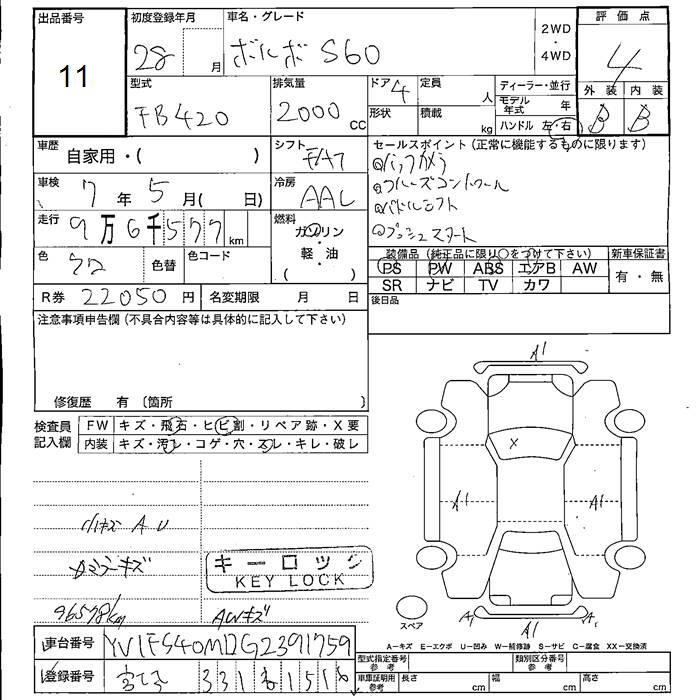 出品番号
11
初度登録年月
28 月
車名・グレード
ボルボ S60
2WD
・
4WD
評価点
4
外装 内装
B B
型式
FB420
排気量
2000 CC
ドア 4
形状
定員 人
積載 kg
ディーラー・並行
モデル年式 年
ハンドル 左・右
車歴
自家用・( )
シフト
冷房
AAC
車検 7年 5月( 日)
走行 9万6千577 km
燃料
ガソリン
軽・油
( )
色
色替
色コード
R券 22050円
名変期限 月 日
セールスポイント (正常に機能するものに限ります)
バックカメラ
クルーズコントロール
パドルシフト
プッシュスタート
装備品 (純正品に限り○をつけて下さい)
PS PW ABS エアB AW
SR ナビ TV カワ
新車保証書
有・無
後日品
注意事項申告欄 (不具合内容等は具体的に記入して下さい)
修復歴 有 〔箇所 〕
検査員記入欄
FW キズ・飛石・ヒビ割・リペア跡・X要
内装 キズ・汚レ・コゲ・穴・スレ・キレ・破レ
小キズ A U
ミラーキズ
96578km
AWキズ
キーロック
KEY LOCK
A1
X
A1
A1
A1 A1 A1
スペア
A-キズ E-エクボ U-凹み W-補修跡 S-サビ C-腐食 XX-交換済
車台番号 YV1FS40MDG2391759
登録番号
331
型式指定番号参考
類別区分番号参考
車庫証明用参考
長さ cm
幅 cm
高さ cm